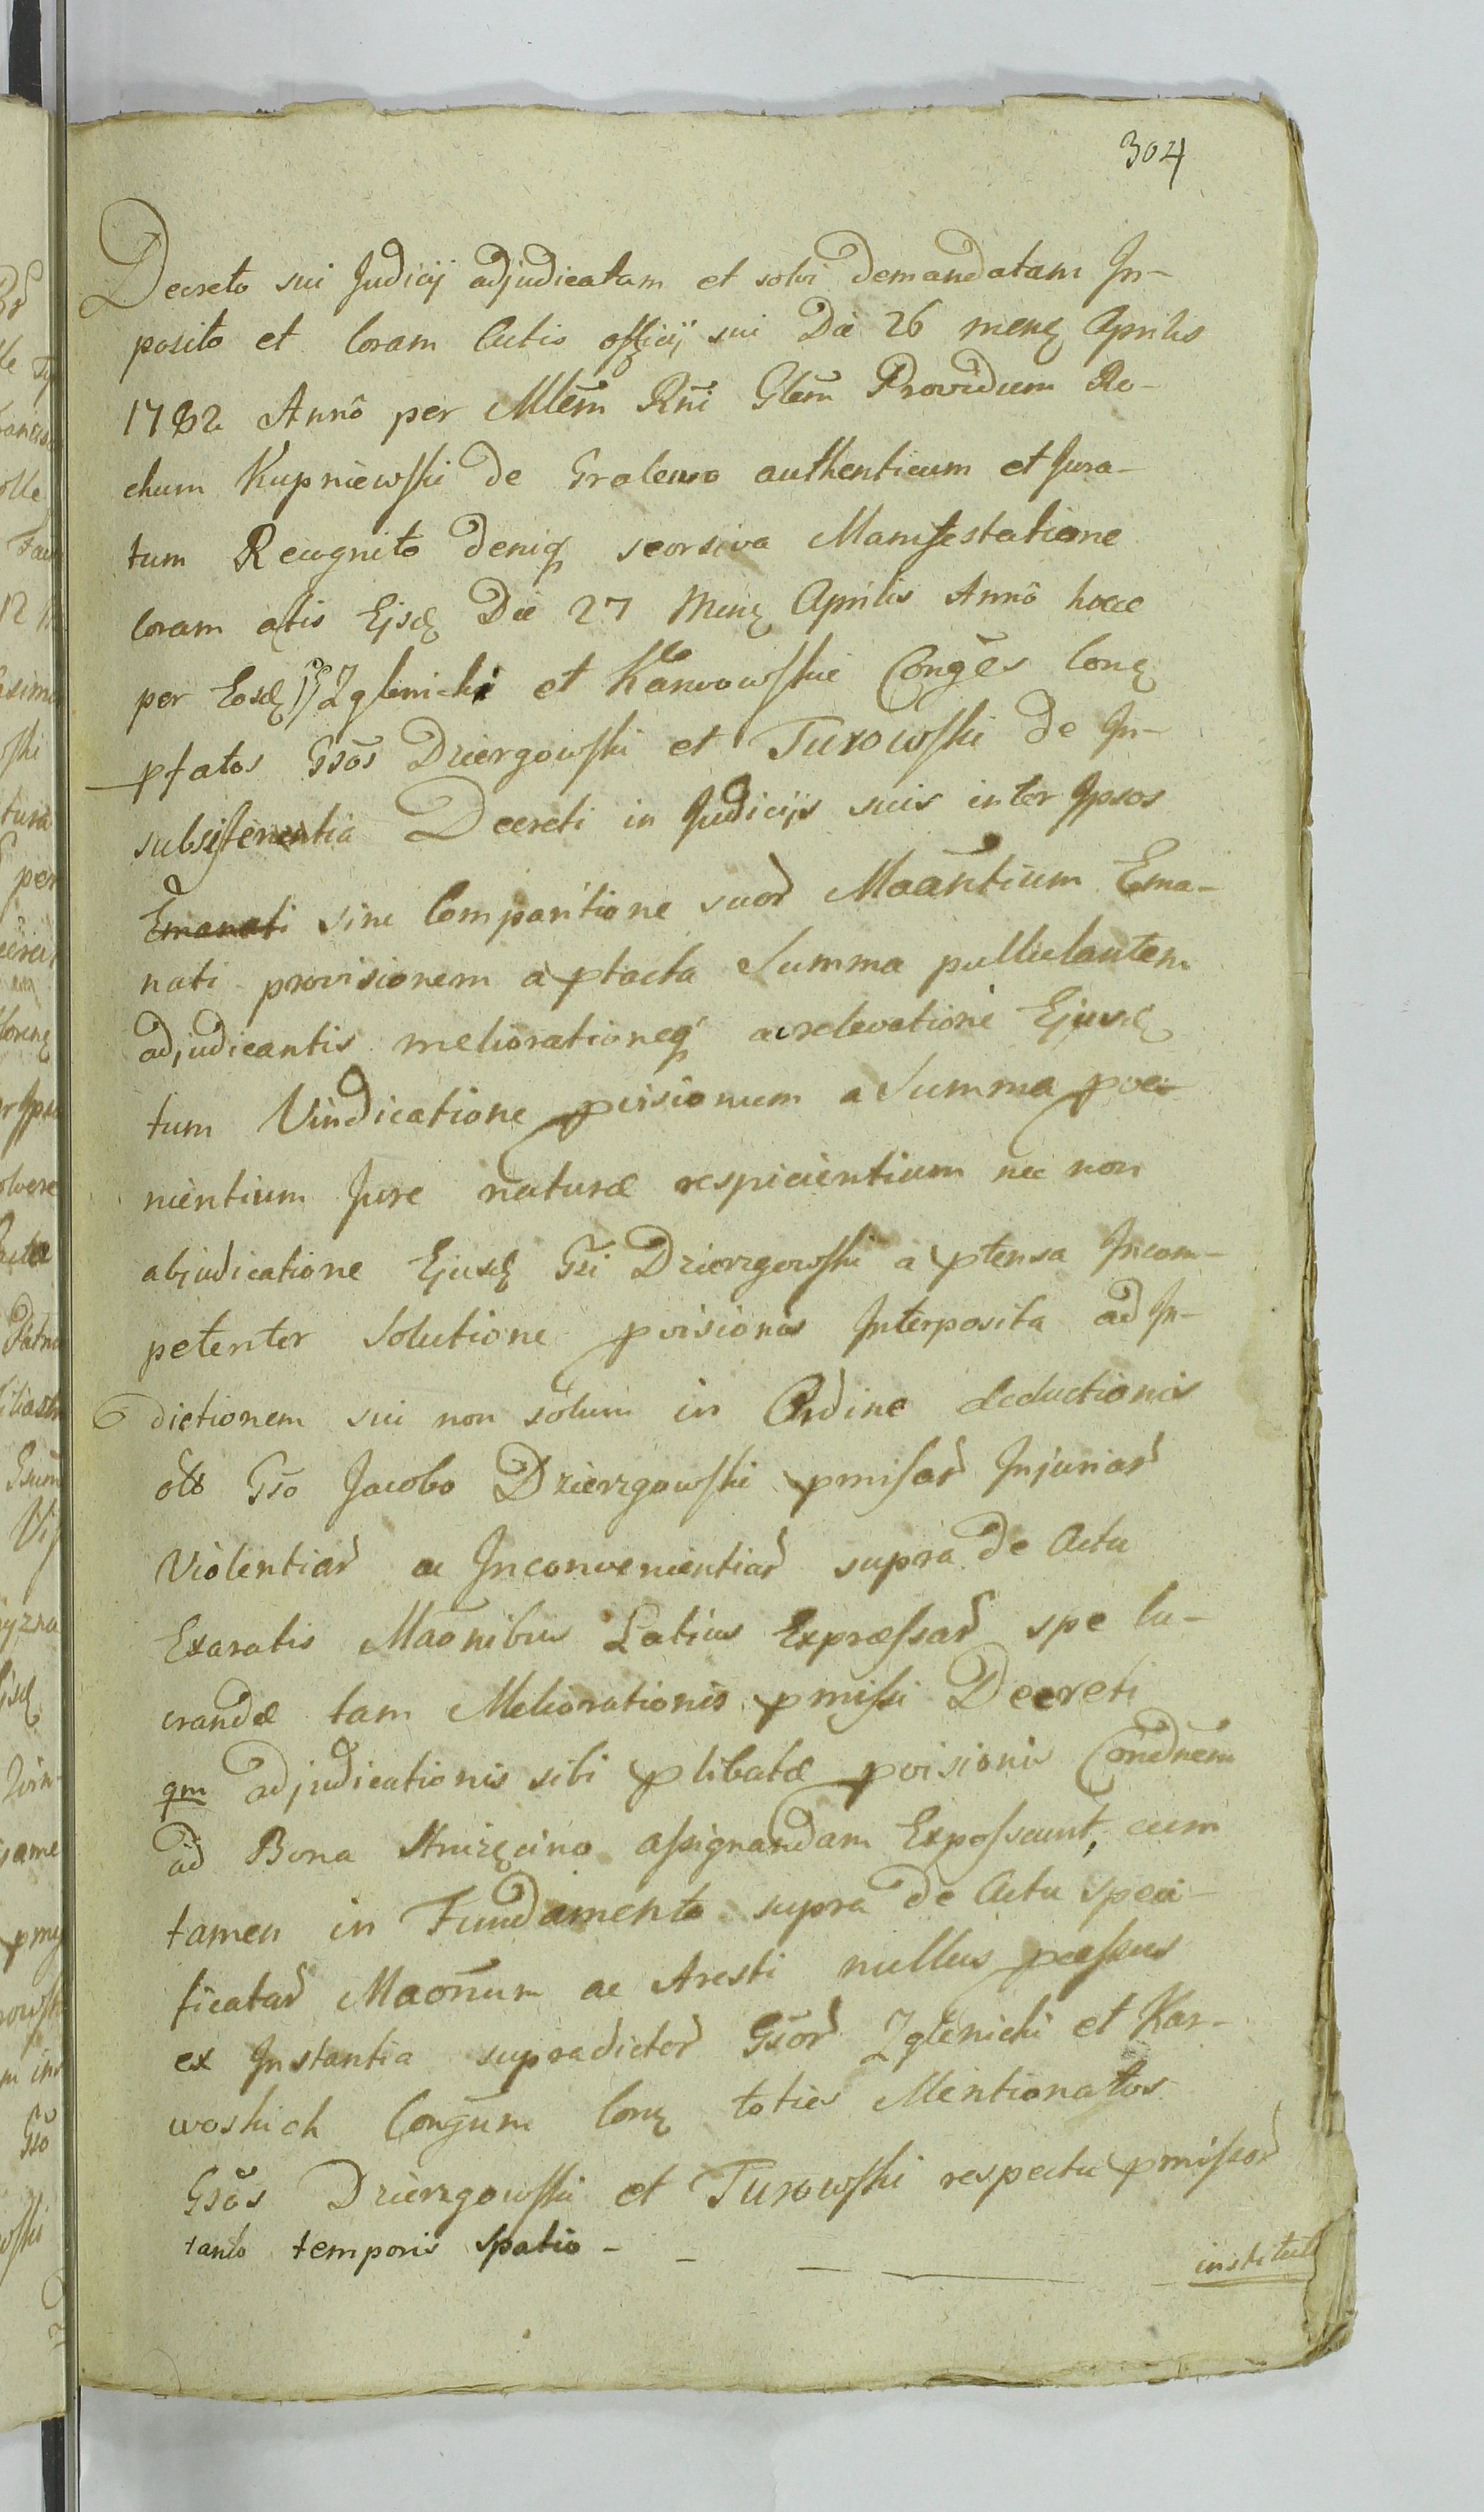 304
Decreto sui Judicij adjudicatam et solvi demandatam In-
posito et Coram Actis officij sui Die 26 mensꝫ Aprilis
1782 Annô per Mlem̃ Rñi Glem̃ Providum Ro-
chum Kupniewski de Gralewo authenticum et Jura-
tum Recognito deniqꝫ seorsiva Manifestatione
Coram actis Ejusdꝫ Die 27 Mensꝫ Aprilis Annô hocce
per Eosdꝫ Zglenicki et Karwowskie Conges̃ Conꝫ
pfatos Gsõs Dzierzgowski et Turowski de In-
subsistentia Decreti in Judicijs suis inter Ipsos
Emanati sine Comparitione suor Maãntium Ema-
nati provisionem a ptacta Summa pullulantem
adjudicantis meliorationeqꝫ ac relevatione Ejusdꝫ
tum Vindicatione pvisionum a Summa pve-
nientium Jure naturæ respicientium nec non
abjudicatione Ejusdꝫ Gsi Dzierzgowski a ptensa Incom-
petenter Solutione pvisionis Interposita ad In-
dictionem sui non solum in Ordine deductionis
Gsõ Jacobo Dzierzgowski pmissar Injuriar
Violentiar ac Inconvenientiar supra de Actu
Exaratis Maõnibus Latius Expressar spe lu-
crandæ tam Meliorationis pmissi Decreti
qm adjudicationis sibi plibatæ pvisionis Condñem
ad Bona assignandam Expossunt, cum
tamen in Fundamento supra de Actu speci-
ficatar Maõnum ac Aresti nullus passus
ex Instantia supradictor Gsõr Zglenicki et Kar-
woskich Conjgum Conꝫ toties Mentionatos
Gsõs Dzierzgowski et Turowski respectu pmissor
tanto temporis spatio - - —
institut